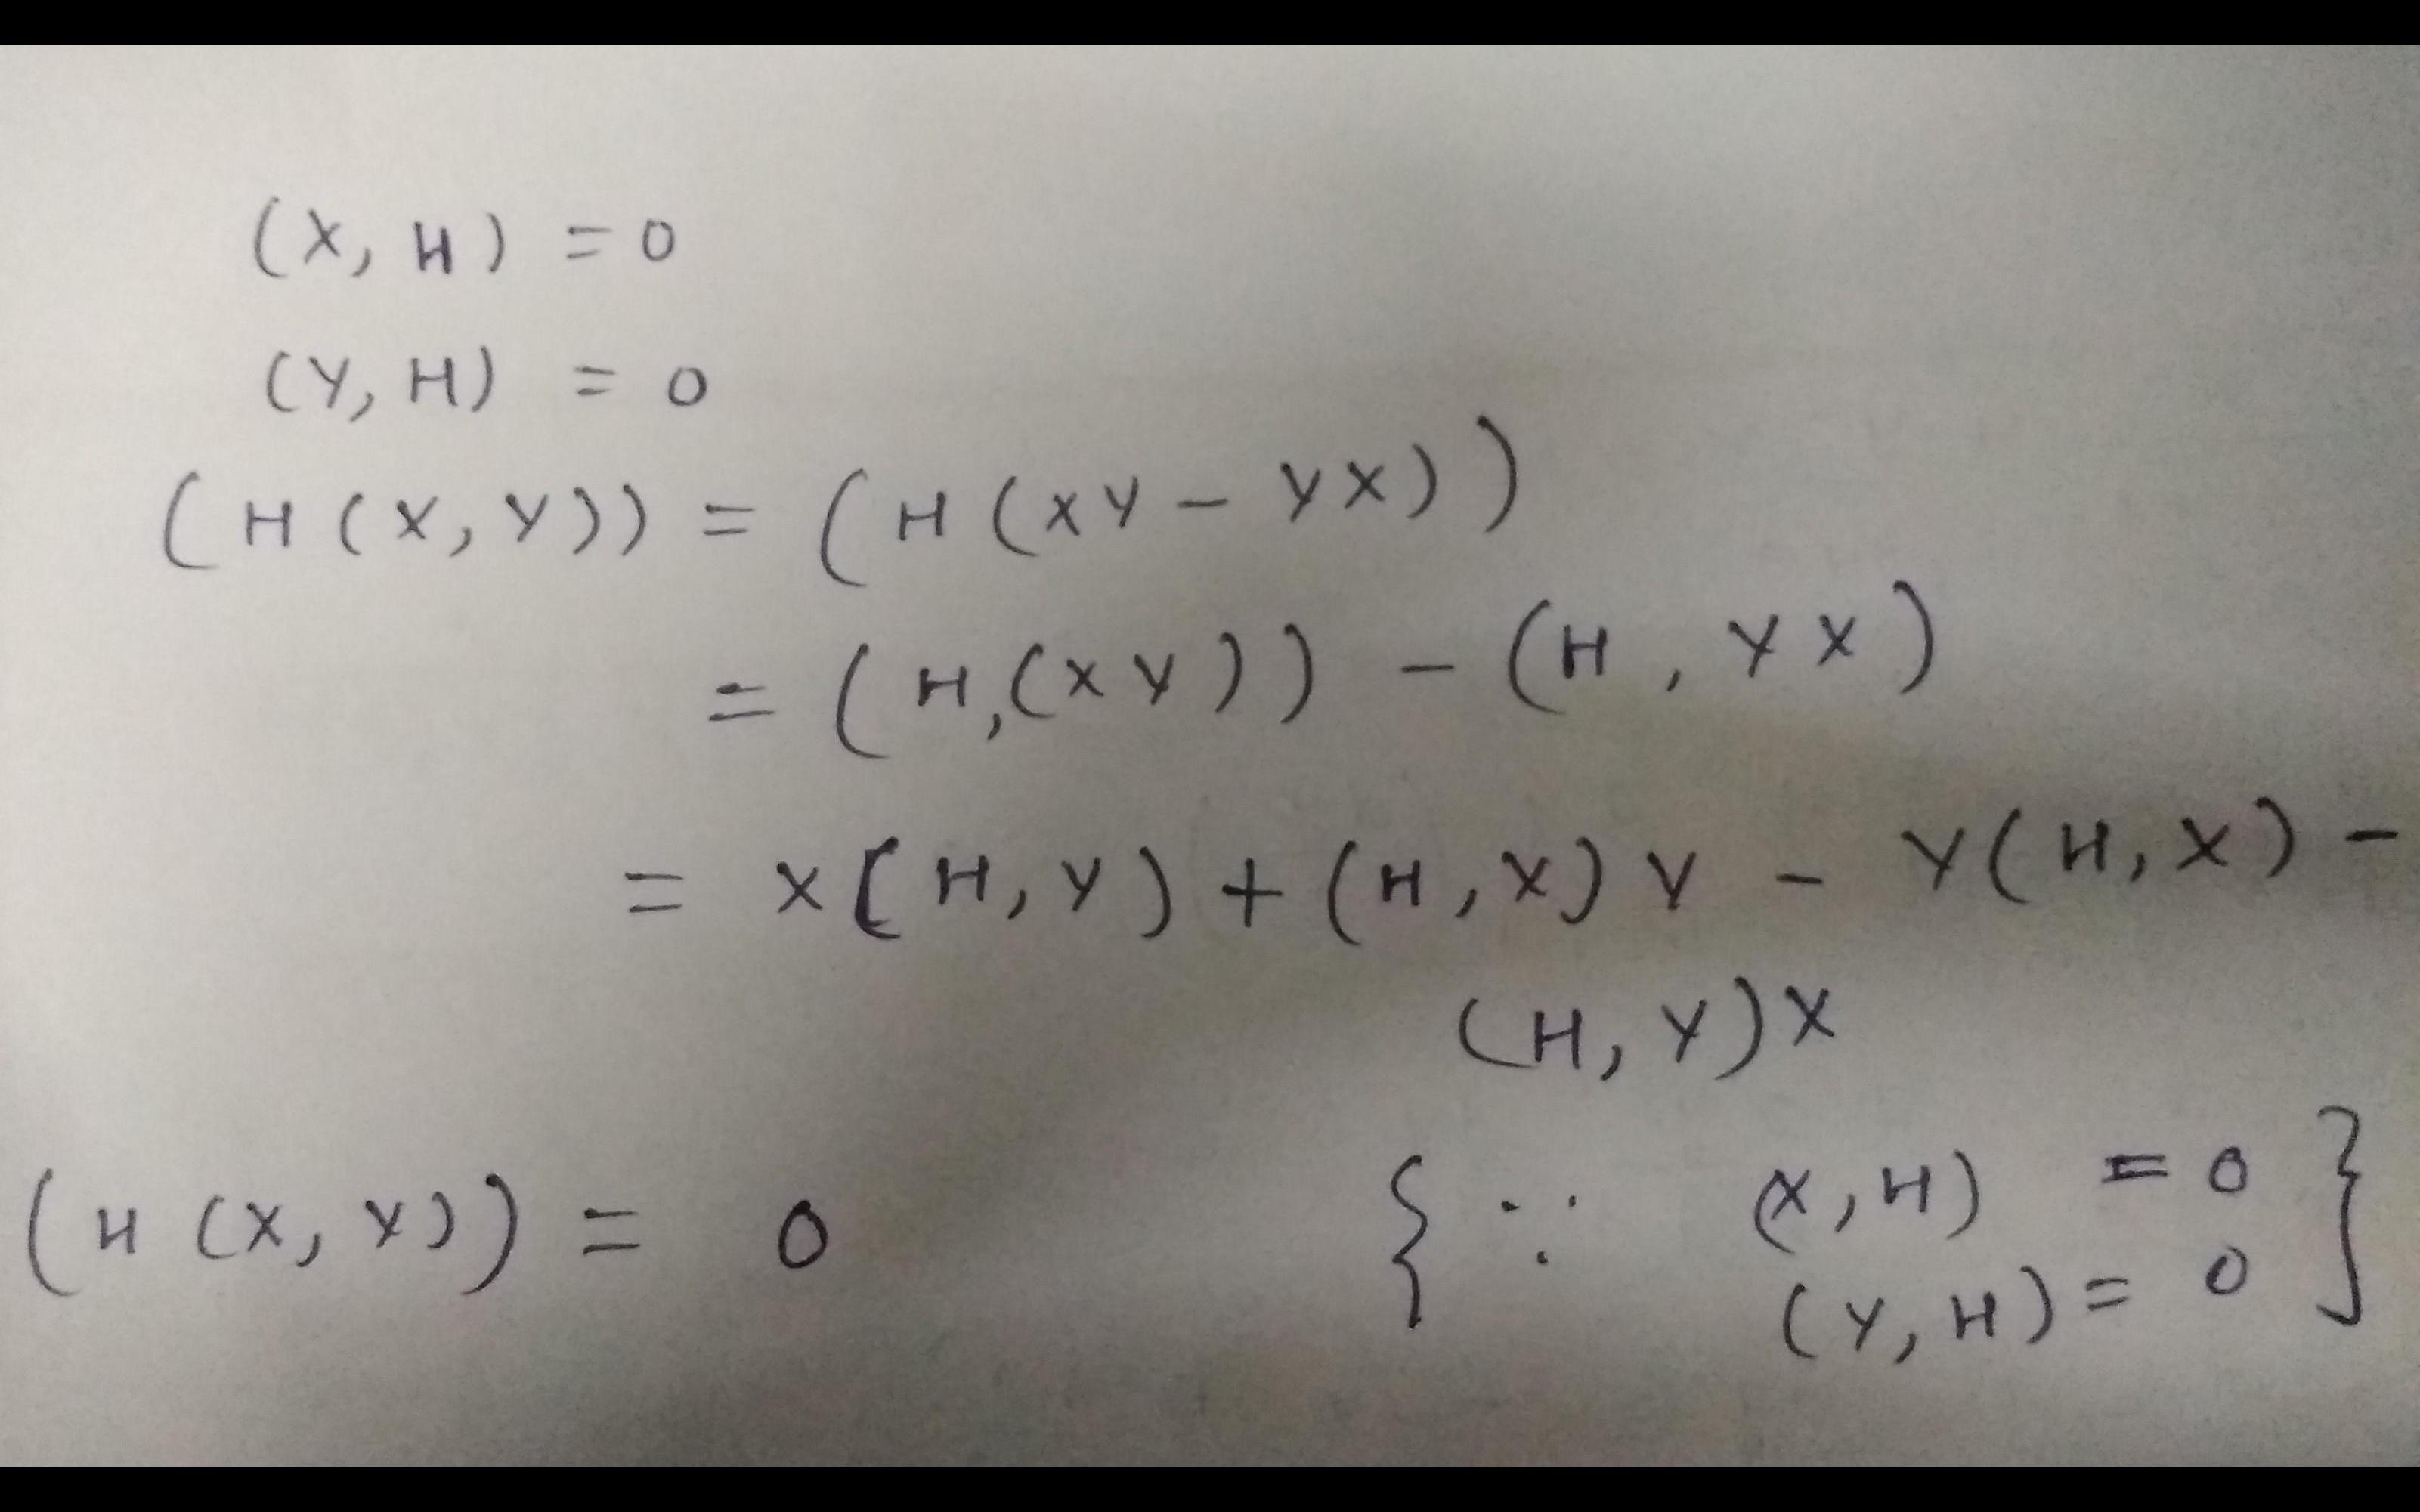 (X, H) = 0
(Y, H) = 0
(H (X, Y)) = (H (XY - YX))
= (H,(XY)) - (H, YX)
= X[H, Y) + (H, X) Y - Y(H, X) -
(H, Y)X
(H (X, Y)) = 0 { ∵ (X, H) = 0
(Y, H) = 0 }